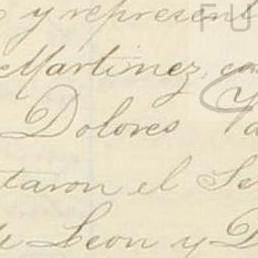 y represent
Martinez, con
Dolores
taron el Se
de Leon y D